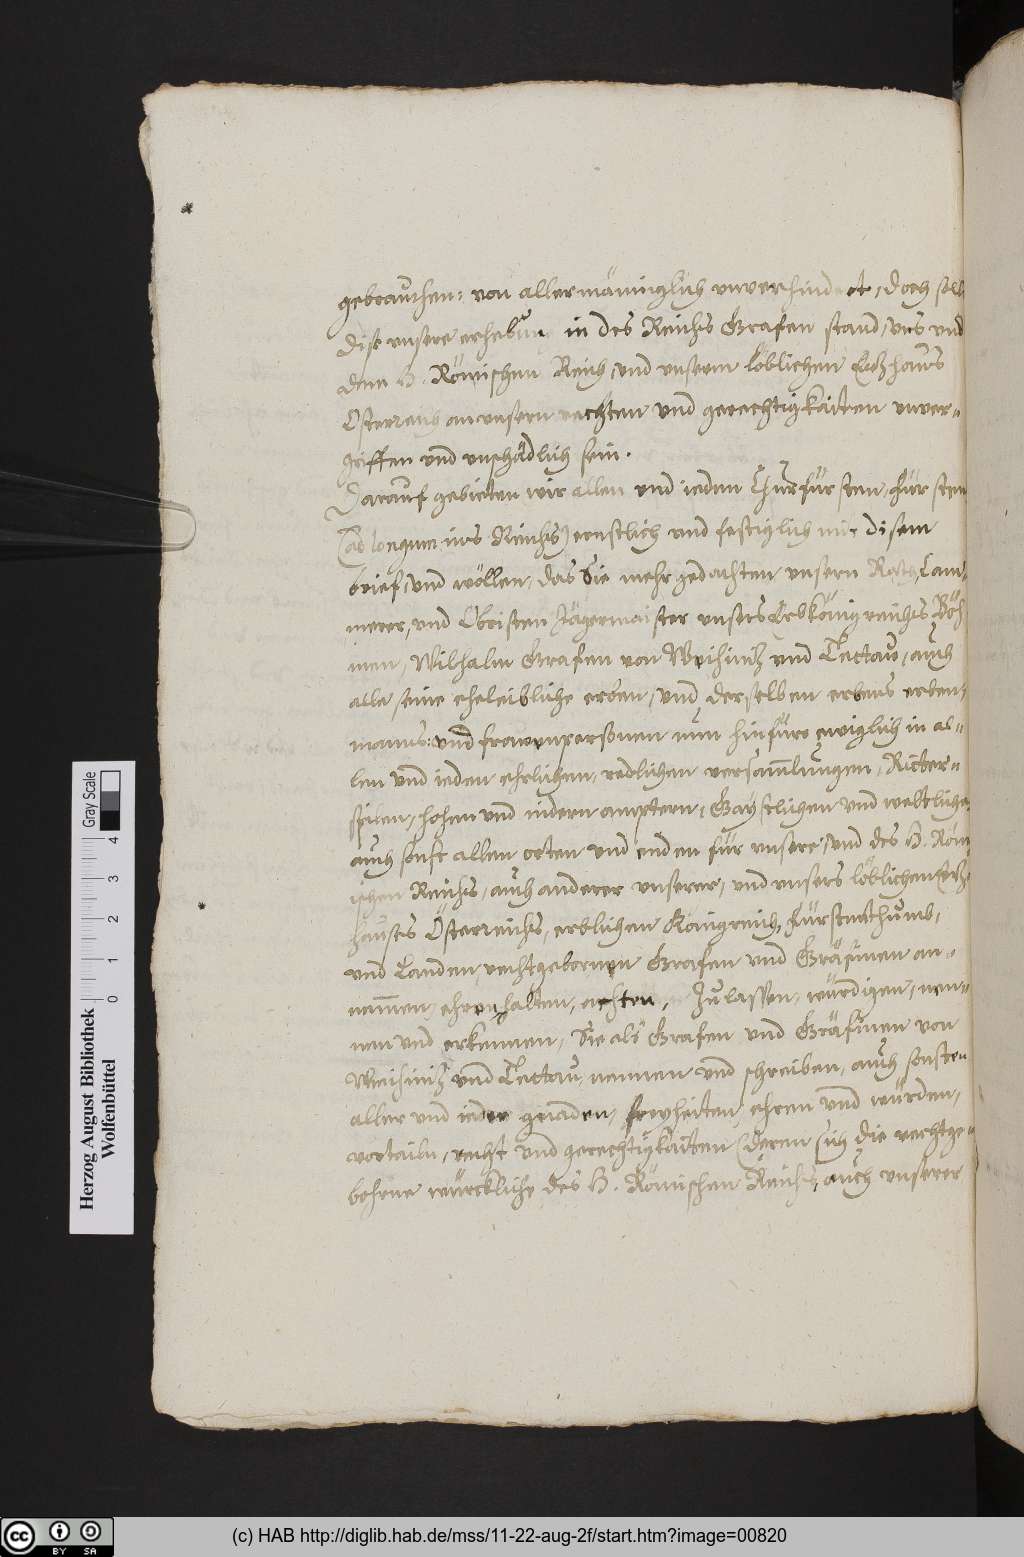 gebrauchen: von allermäniglich unverhindert, doch soll
dise unsere erhebung in des Reichs Grafen stand, uns und
dem H. Römischen Reich, und unserm löblichen Erzhaus
Österreich an unsern rechten und gerechtigkaiten unver-
griffen und unschädlich sein.
Darauf gebieten wir allen und ieden Churfürsten, Fürsten
(ad longum ins Reichs) ernstlich und festiglich mit disem
brief, und wöllen, das Sie mehrgedachten unsern Rath, Cam-
merer, und Obristen Jägermaister unsers Erbkönigreichs Böh-
men, Wilhalm Grafen von und Tettaw, auch
alle seine eheleibliche erben, und derselben erbens erben,
manns: und frawenpersonen nun hinfüro ewiglich in al-
len und ieden ehrlichen, redlichen versamlungen, Ritter-
spilen, hohen und nidern ämptern, Gaystlichen und weltlichen
auch sonst allen orten und enden für unsere, und des H. Röm
ischen Reichs, auch anderer unserer, und unsers löblichen Erz-
hauses Österreichs, erblichen Königreich, Fürstenthumb,
und Landen, rechtgebornen Grafen und Gräfinen an-
nemmen, ehren, halten, achten, zulassen, würdigen, nen-
nen und erkennen, Sie als Grafen und Gräfinen von
und Tettau, nennen und schreiben, auch sonsten
aller und ieder gnaden, freyheiten, ehren und würden,
vortailn, recht und gerechtigkaiten (deren sich die rechtge-
bohrne würckliche des H. Römischen Reichs, auch unserer
Herzog August Bibliothek
Wolfenbüttel
0 1 2 3 4
Gray Scale
cc BY SA
(c) HAB http://diglib.hab.de/mss/11-22-aug-2f/start.htm?image=00820